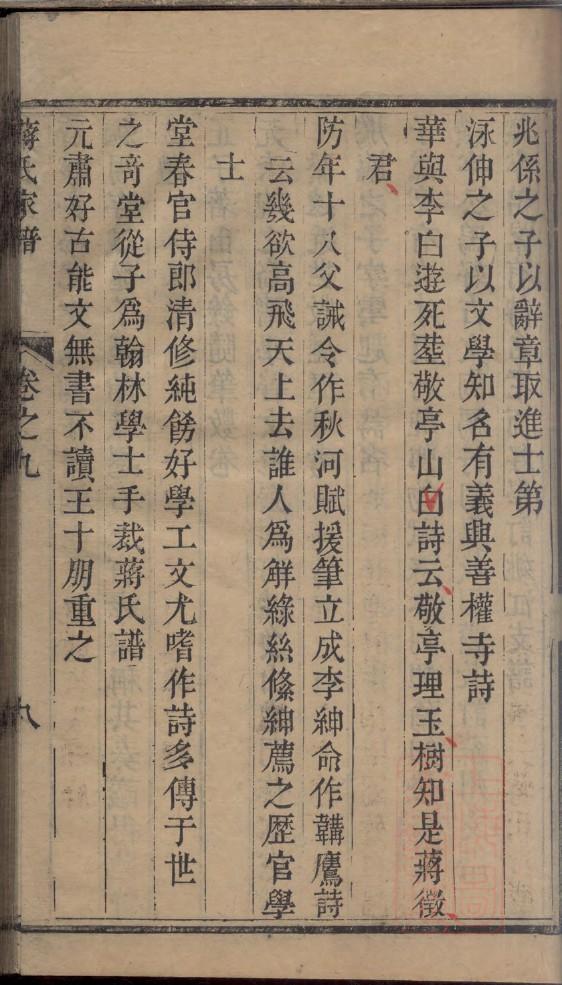 兆係之子以辭章取進士第
泳伸之子以文學知名有義與善權寺詩
華與李白遊死塟敬亭山白詩云敬亭理玉樹知是蔣徵
君
防年十八父誡令作秋河賦援筆立成李紳命作韝鷹詩
云幾欲高飛天上去誰人爲觧綠絲絛紳薦之歷官學
士
堂春官侍郎清修純餝好學工文尤嗜作詩多傳于世
之竒堂從子爲翰林學士手裁蔣氏譜
元肅好古能文無書不讀王十朋重之
蔣氏家譜
卷之九
八